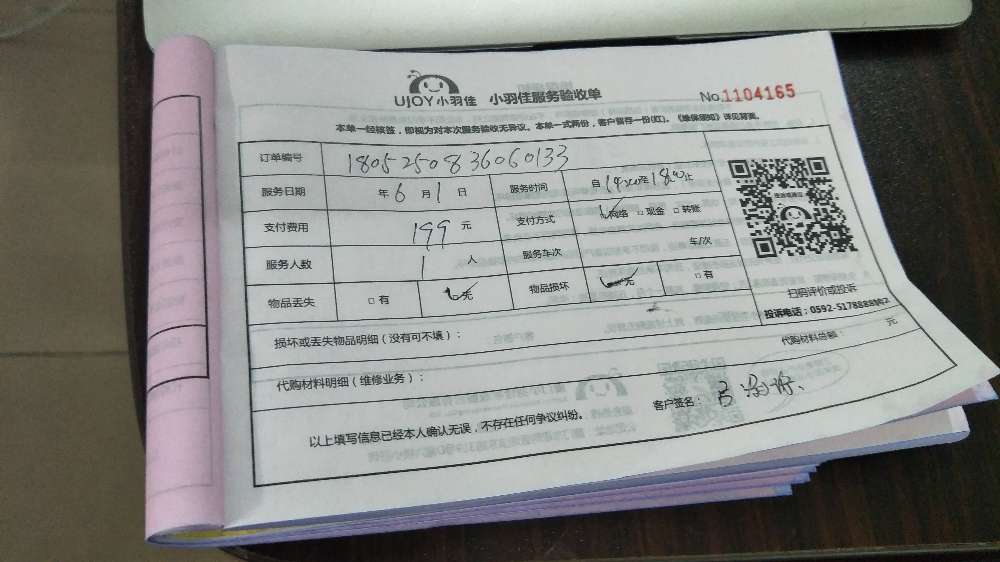 UJOY小羽佳 小羽佳服务验收单 No.1104165
本单一经核签，即视为对本次服务验收无异议。本单一式两份，客户留存一份(红)。《维保须知》详见背面。
订单编号 1805250836060133
服务日期 年 6 月 1 日 服务时间 自 14:00 至 18:00 止
支付费用 199 元 支付方式 网络 □ 现金 □ 转账
服务人数 1 人 服务车次 车/次
物品丢失 □ 有 无 物品损坏 无 □ 有
扫码评价或投诉
投诉电话：0592-5178888转2
损坏或丢失物品明细（没有可不填）：
代购材料明细（维修业务）： 代购材料总额： 元
以上填写信息已经本人确认无误，不存在任何争议纠纷。 客户签名：